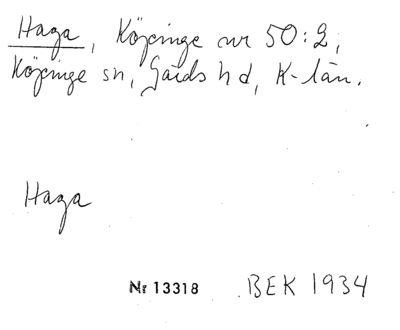 Haga, Köpinge nr 50:2,
Köpinge sn, Gärds hd, K-län.
Haga
Nr 13318 BEK 1934